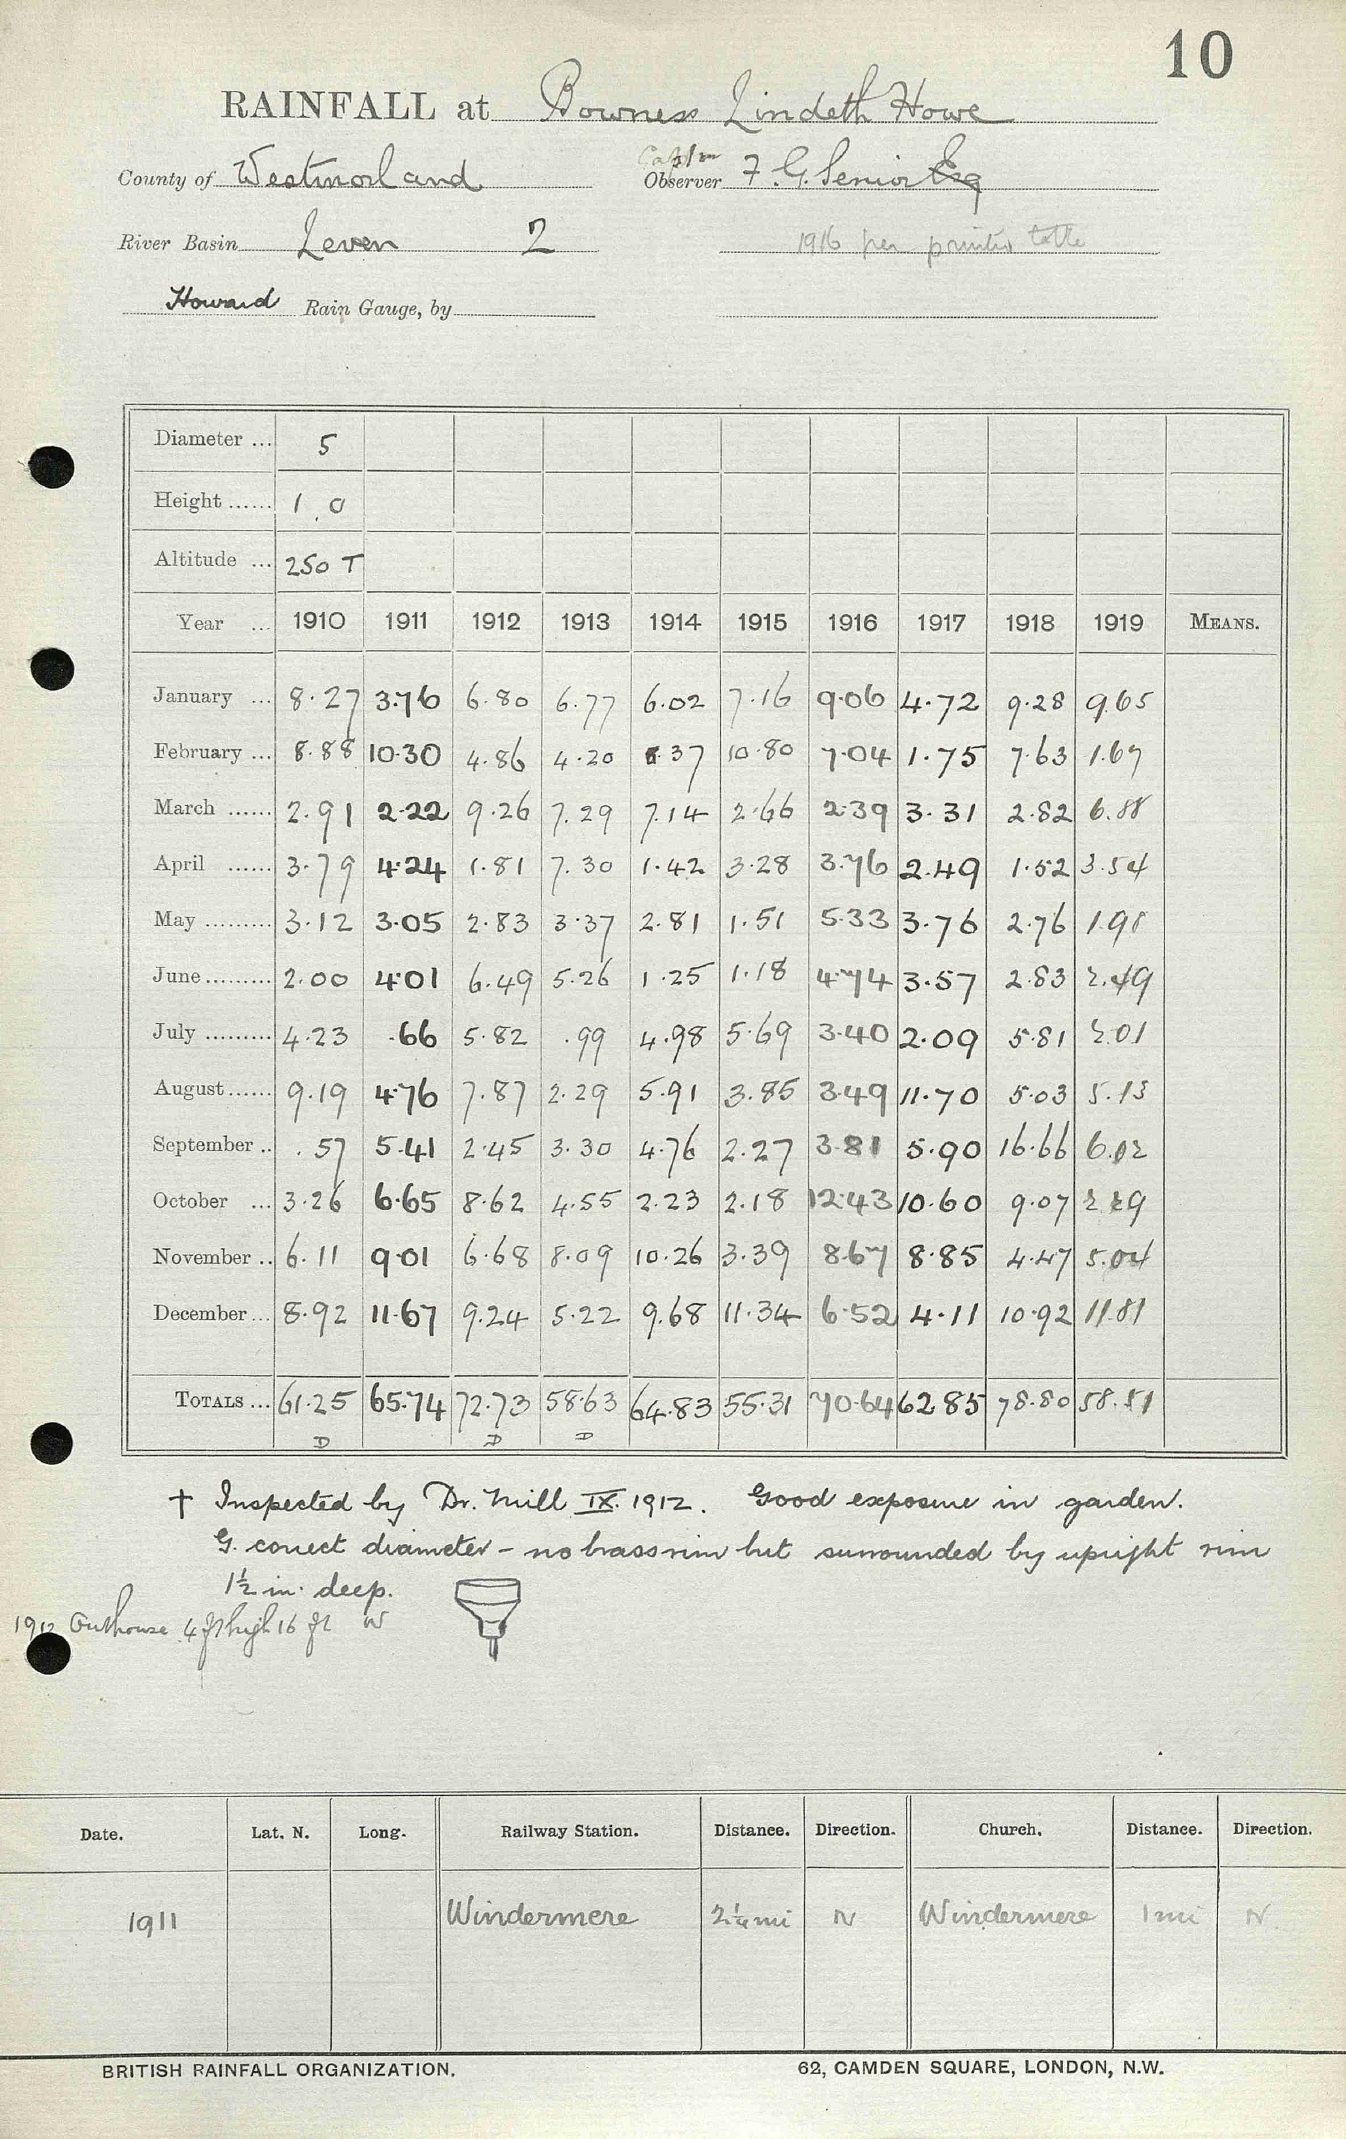 10
RAINFALL at Bowness Lindeth Howe
County of Westmorland Observer Captn F. G. Senior Esq
River Basin Leven 2 1916 per printed table
Howard Rain Gauge, by
Diameter ... 5
Height ...... 1.0
Altitude ... 250 T
Year ... 1910 1911 1912 1913 1914 1915 1916 1917 1918 1919 MEANS.
January ... 8.27 3.76 6.80 6.77 6.02 7.16 9.06 4.72 9.28 9.65
February ... 8.88 10.30 4.86 4.20 8.37 10.80 7.04 1.75 7.63 1.67
March ...... 2.91 2.22 9.26 7.29 7.14 2.66 2.39 3.31 2.82 6.88
April ...... 3.79 4.24 1.81 7.30 1.42 3.28 3.76 2.49 1.52 3.54
May ......... 3.12 3.05 2.83 3.37 2.81 1.51 5.33 3.76 2.76 1.98
June ......... 2.00 4.01 6.49 5.26 1.25 1.18 4.74 3.57 2.83 2.49
July ......... 4.23 .66 5.82 .99 4.98 5.69 3.40 2.09 5.81 2.01
August ...... 9.19 4.76 7.87 2.29 5.91 3.85 3.49 11.70 5.03 5.13
September .. .57 5.41 2.45 3.30 4.76 2.27 3.81 5.90 16.66 6.02
October ... 3.26 6.65 8.62 4.55 2.23 2.18 12.43 10.60 9.07 2.29
November .. 6.11 9.01 6.68 8.09 10.26 3.39 8.67 8.85 4.47 5.04
December ... 8.92 11.67 9.24 5.22 9.68 11.34 6.52 4.11 10.92 11.81
TOTALS ... 61.25 65.74 72.73 58.63 64.83 55.31 70.64 62.85 78.80 58.51
D D D
† Inspected by Dr. Mill IX. 1912. Good exposure in garden.
G. correct diameter - no brass rim but surrounded by upright rim
1½ in. deep.
1912 Outhouse 4 ft high 16 ft W
Date. Lat. N. Long. Railway Station. Distance. Direction. Church. Distance. Direction.
1911 Windermere 2¼ mi N Windermere 1 mi N.
BRITISH RAINFALL ORGANIZATION. 62, CAMDEN SQUARE, LONDON, N.W.